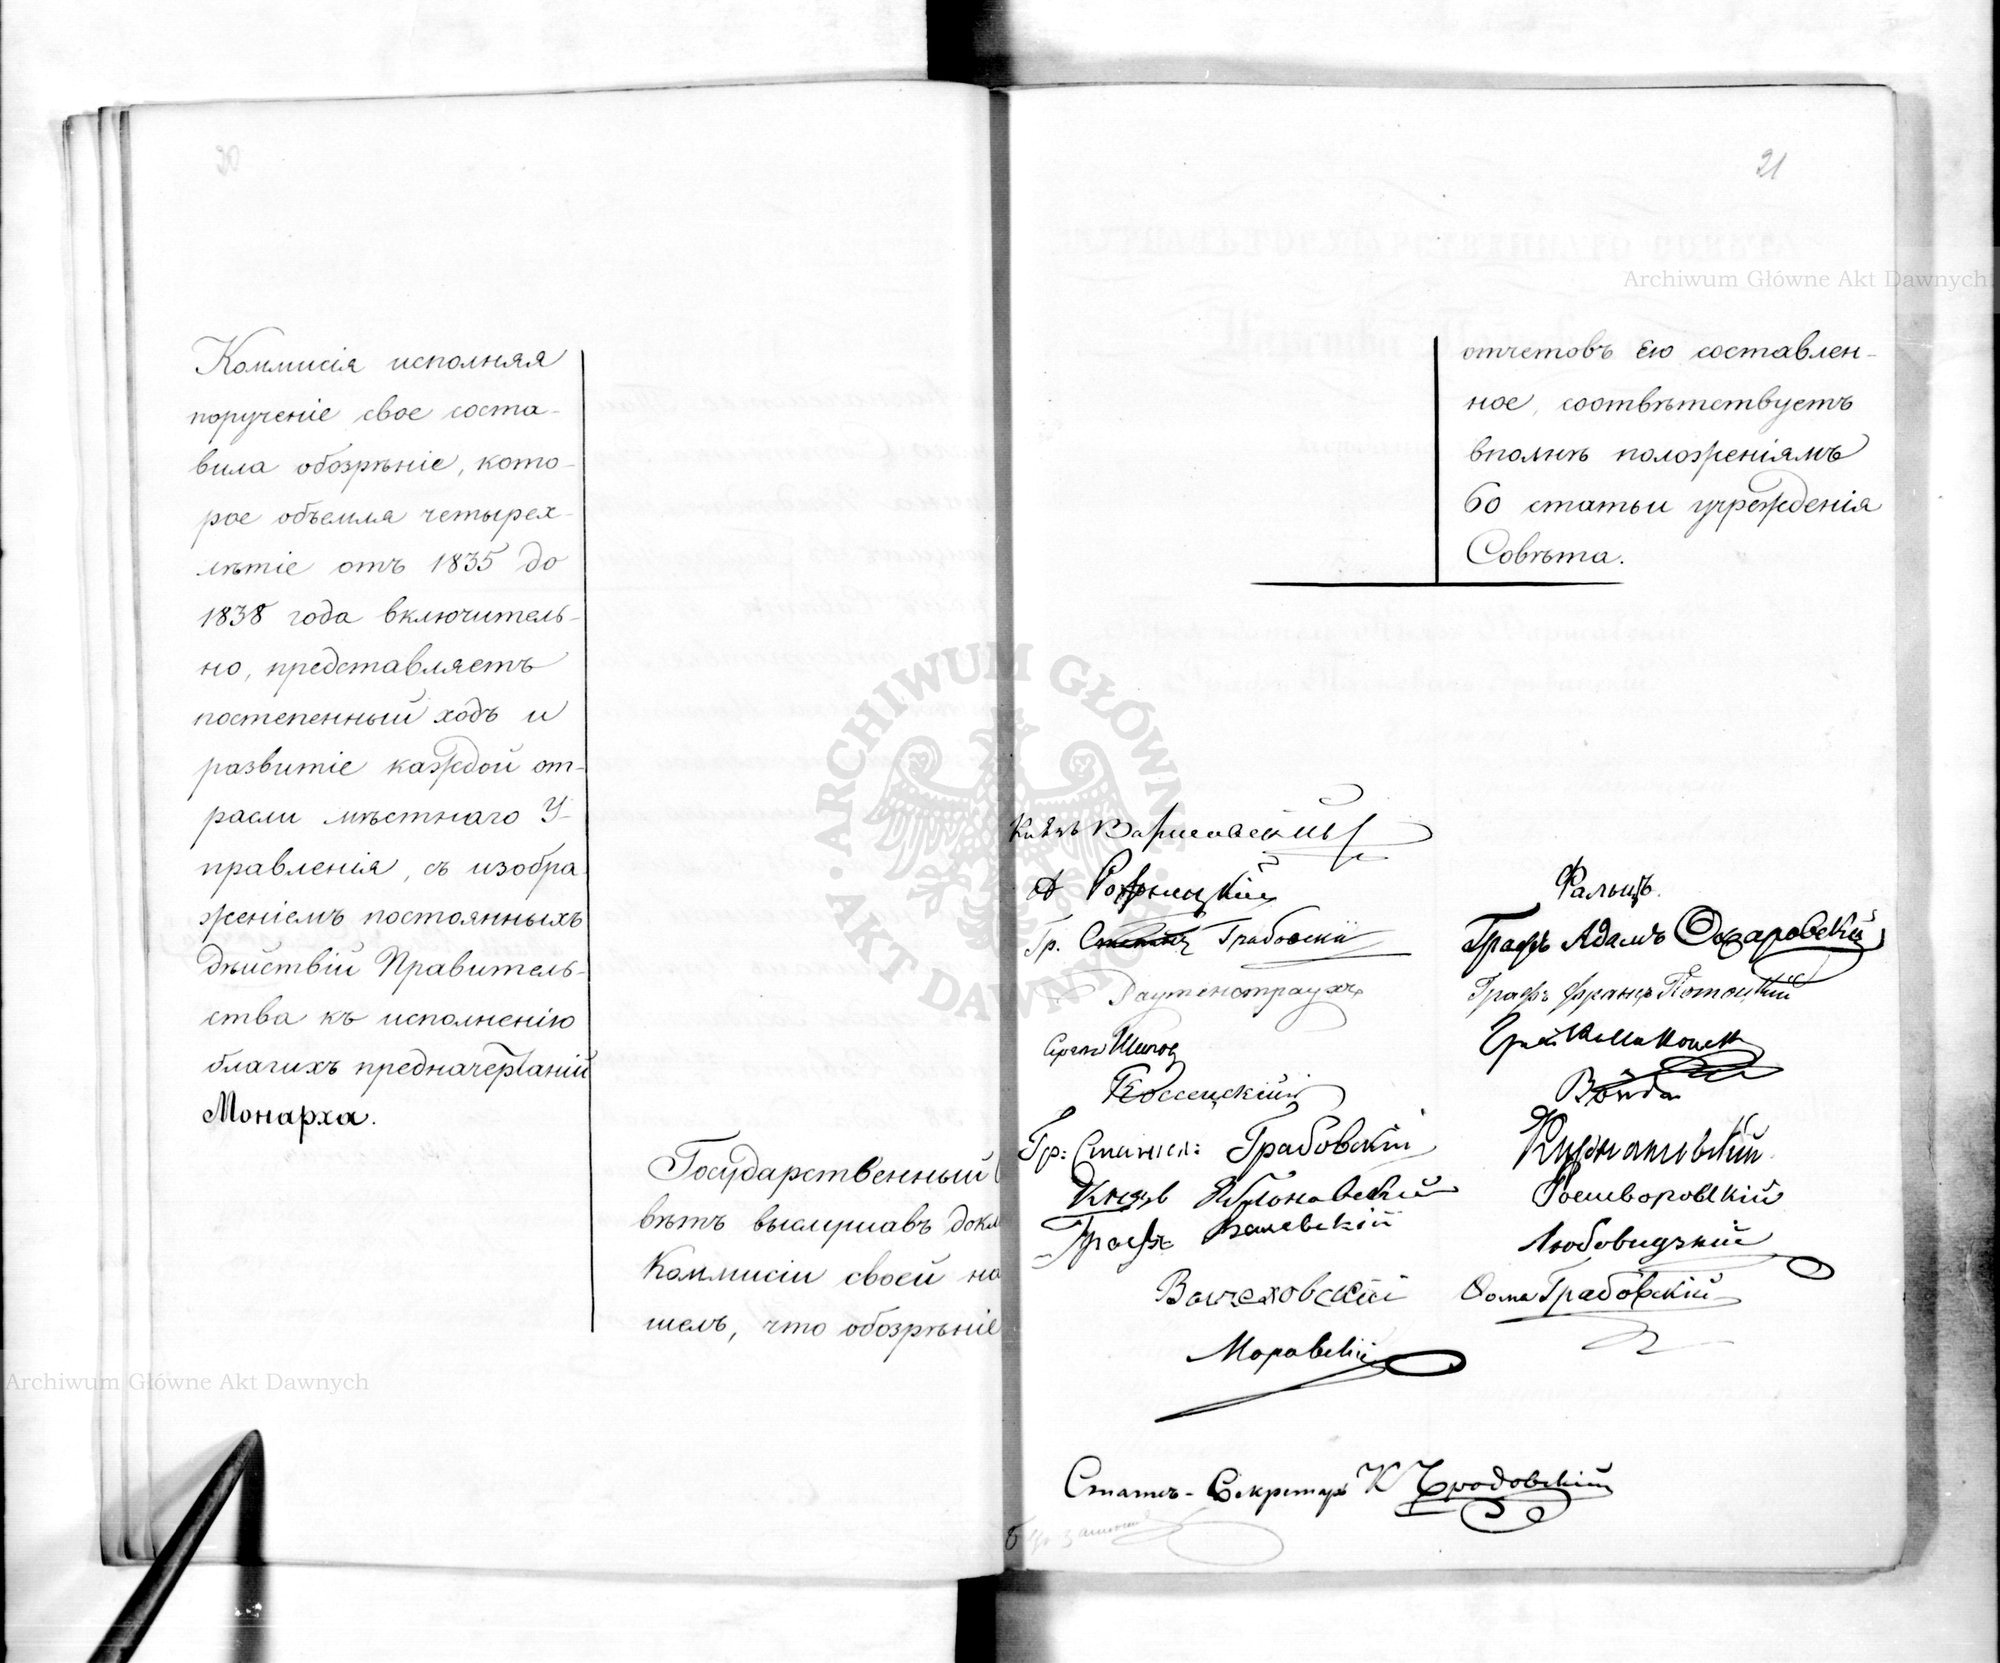 20
Коммисія исполняя
порученіе свое соста-
вила обозрѣніе, кото-
рое объемля четырех-
лѣтіе отъ 1835 до
1838 года включитель-
но, представляетъ
постепенный ходъ и
развитіе каждой от-
расли мѣстнаго У-
правленія, съ изобра-
женіемъ постоянныхъ
дѣйствій Правитель-
ства къ исполненію
благихъ предначертаній
Монарха.
Государственный
вѣтъ выслушавъ докл
Коммисіи своей на
шелъ, что обозрѣніе
21
отчетовъ Ею составлен-
ное, соотвѣтствуетъ
вполнѣ положеніямъ
60 статьи учрежденія
Совѣта.
Князь Варшавскій
А Рожнецкій
Гр. Грабовскій
Раутенстраухъ
Шипов
Коссецкій
Гр: Станисл: Грабовскій
Князь Яблоновскій
Графъ Валевскій
Воыцеховскій
Моравскій
Фальцъ.
Графъ Адамъ Ожаровскій
Графъ Францъ Потоцкій
Войда
Любовидзкій
Ѳома Грабовскій
Статсъ-Секретарь К
Archiwum Główne Akt Dawnych
Archiwum Główne Akt Dawnych
ARCHIWUM GŁÓWNE · AKT DAWNYCH ·